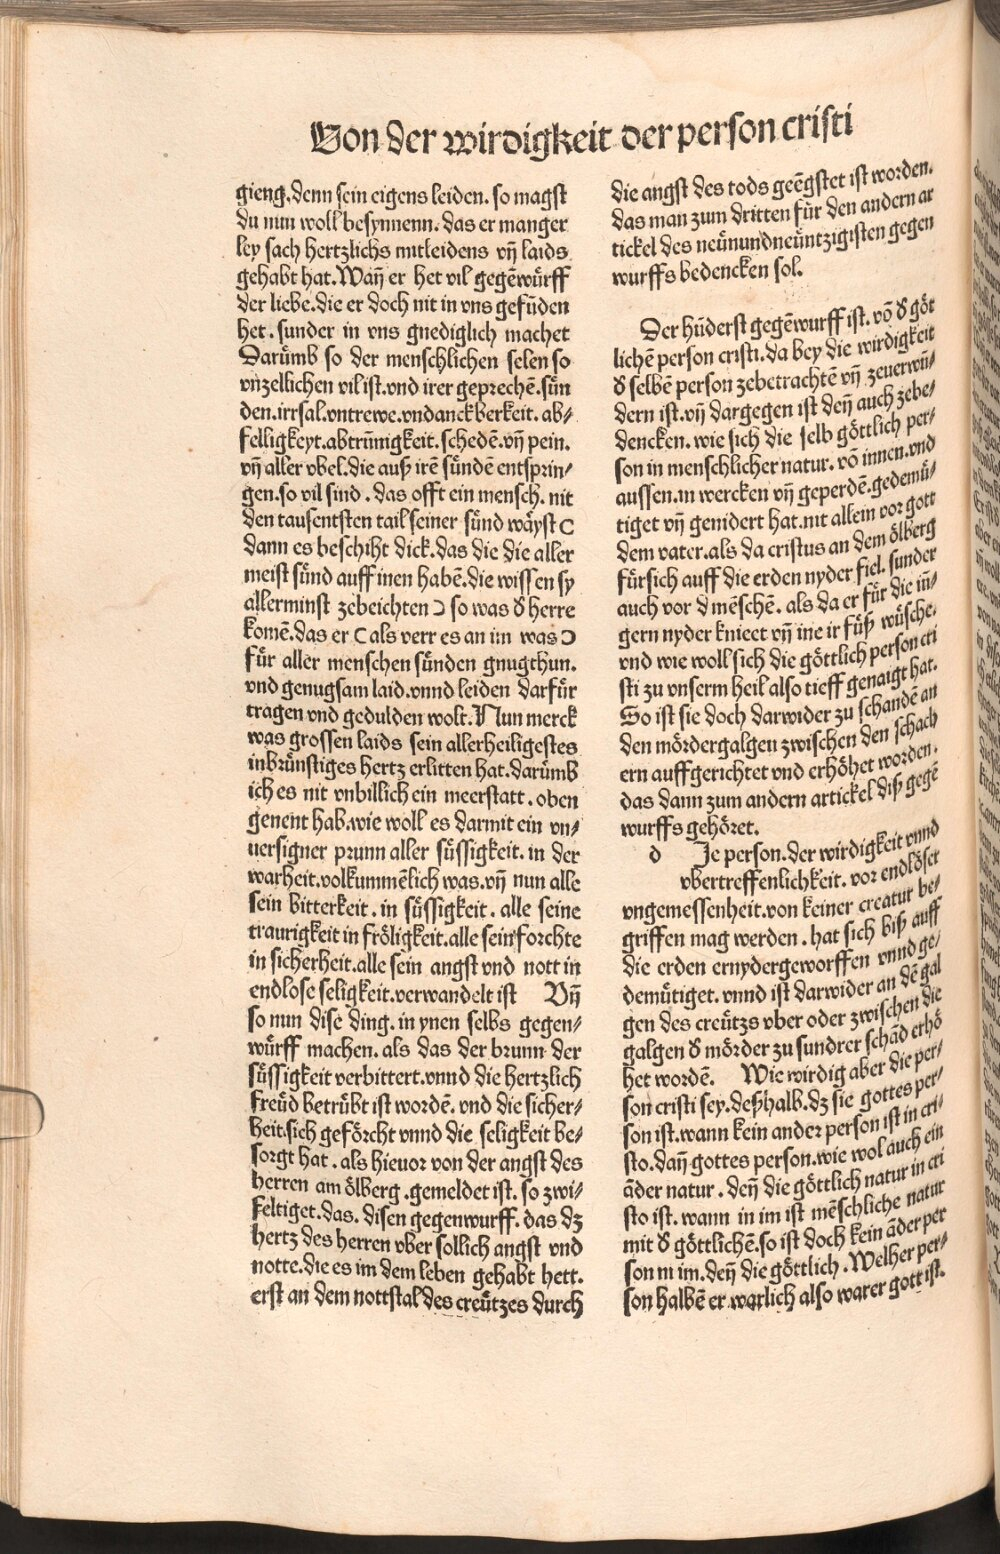 Von der wirdigkeit der person cristi
gieng. denn sein eigens leiden. so magst
du nun woll besynnenn. das er manger
ley sach hertzlichs mitleidens vn̄ laids
gehabt hat. Wan̄ er het vil gegēwuͤrff
der liebe. die er doch nit in vns gefūden
het. sunder in vns gnediglich machet
Daruͤmb so der menschlichen selen so
vnzellichen vil ist. vnd irer geprechē. suͤn
den. irrsal. vntrewe. vndanckberkeit. ab⸗
felligkeyt. abtruͤnnigkeit. schedē. vn̄ pein.
vn̄ aller vbel. die auß irē suͤndē entsprin⸗
gen. so vil sind. das offt ein mensch. nit
den tausentsten tail seiner suͤnd waͤyst (
dann es beschiht dick. das die die aller
meist suͤnd auff inen habē. die wissen sy
allerminst zebeichten ) so was d̕ herre
komē. das er ( als verr es an im was )
fuͤr aller menschen suͤnden gnugthun.
vnd genugsam laid. vnnd leiden darfuͤr
tragen vnd gedulden wolt. Nun merck
was grossen laids sein allerheiligestes
inbruͤnstiges hertz erlitten hat. daruͤmb
ich es nit vnbillich ein meerstatt. oben
genent hab. wie woll es darmit ein vn⸗
uersigner prunn aller suͤssigkeit. in der
warheit. volkummēlich was. vn̄ nun alle
sein bitterkeit. in suͤssigkeit. alle seine
traurigkeit in froͤligkeit. alle sein forchte
in sicherheit. alle sein angst vnd nott in
endlose seligkeit. verwandelt ist Vn̄
so nun dise ding. in ynen selbs gegen⸗
wuͤrff machen. als das der brunn der
suͤssigkeit verbittert. vnnd die hertzlich
freuͤd betruͤbt ist wordē. vnd die sicher⸗
heit. sich gefoͤrcht vnnd die seligkeit be⸗
sorgt hat. als hieuor von der angst des
herren am oͤlberg. gemeldet ist. so zwi⸗
feltiget. das. disen gegenwurff. das dz
hertz des herren vber sollich angst vnd
notte. die es im dem leben gehabt hett.
erst an dem nottstal des creuͤtzes durch
die angst des tods geēgstet ist worden.
das man zum dritten fuͤr den andern ar
tickel des neuͤnundneuͤntzigisten gegen
wurffs bedencken sol.
Der hūderst gegēwurff ist. vō d̕ goͤt
lichē person cristi. da bey die wirdigkeit
d̕ selbē person zebetrachtē vn̄ zeuerwū⸗
dern ist. vn̄ dargegen ist den̄ auch zebe⸗
dencken. wie sich die selb goͤttlich per⸗
son in menschlicher natur. vō innen. vnd
aussen. in wercken vn̄ geperdē. gedemuͤ⸗
tiget vn̄ genidert hat. nit allein vor gott
dem vater. als da cristus an dem oͤlberg
fuͤrsich auff die erden nyder fiel. sunder
auch vor d̕ mēschē. als da er fuͤr die iū⸗
gern nyder knieet vn̄ ine ir fuͤß wuͤsche.
vnd wie woll sich die goͤttlich person cri
sti zu vnserm heil also tieff genaigt hat.
So ist sie doch darwider zu schandē an
den moͤrdergalgen zwischen den schach
ern auffgerichtet vnd erhoͤhet worden.
das dann zum andern artickel diß gegē
wurffs gehoͤret.
d Je person. der wirdigkeit vnnd
vbertreffenlichkeit. vor endloͤser
vngemessenheit. von keiner creatur be⸗
griffen mag werden. hat sich biß auff
die erden ernydergeworffen vnnd ge⸗
demuͤtiget. vnnd ist darwider an dē gal
gen des creuͤtzs vber oder zwischen die
galgen d̕ moͤrder zu sundrer schād erhoͤ
het wordē. Wie wirdig aber die per⸗
son cristi sey. deßhalb. dz sie gottes per⸗
son ist. wann kein ander person ist in cri⸗
sto. dan̄ gottes person. wie wol auch ein
āder natur. den̄ die goͤttlich natur in cri
sto ist. wann in im ist mēschliche natur
mit d̕ goͤttlichē. so ist doch kein āder per
son in im. den̄ die goͤttlich. Welher per⸗
son halbē er warlich also warer gott ist.